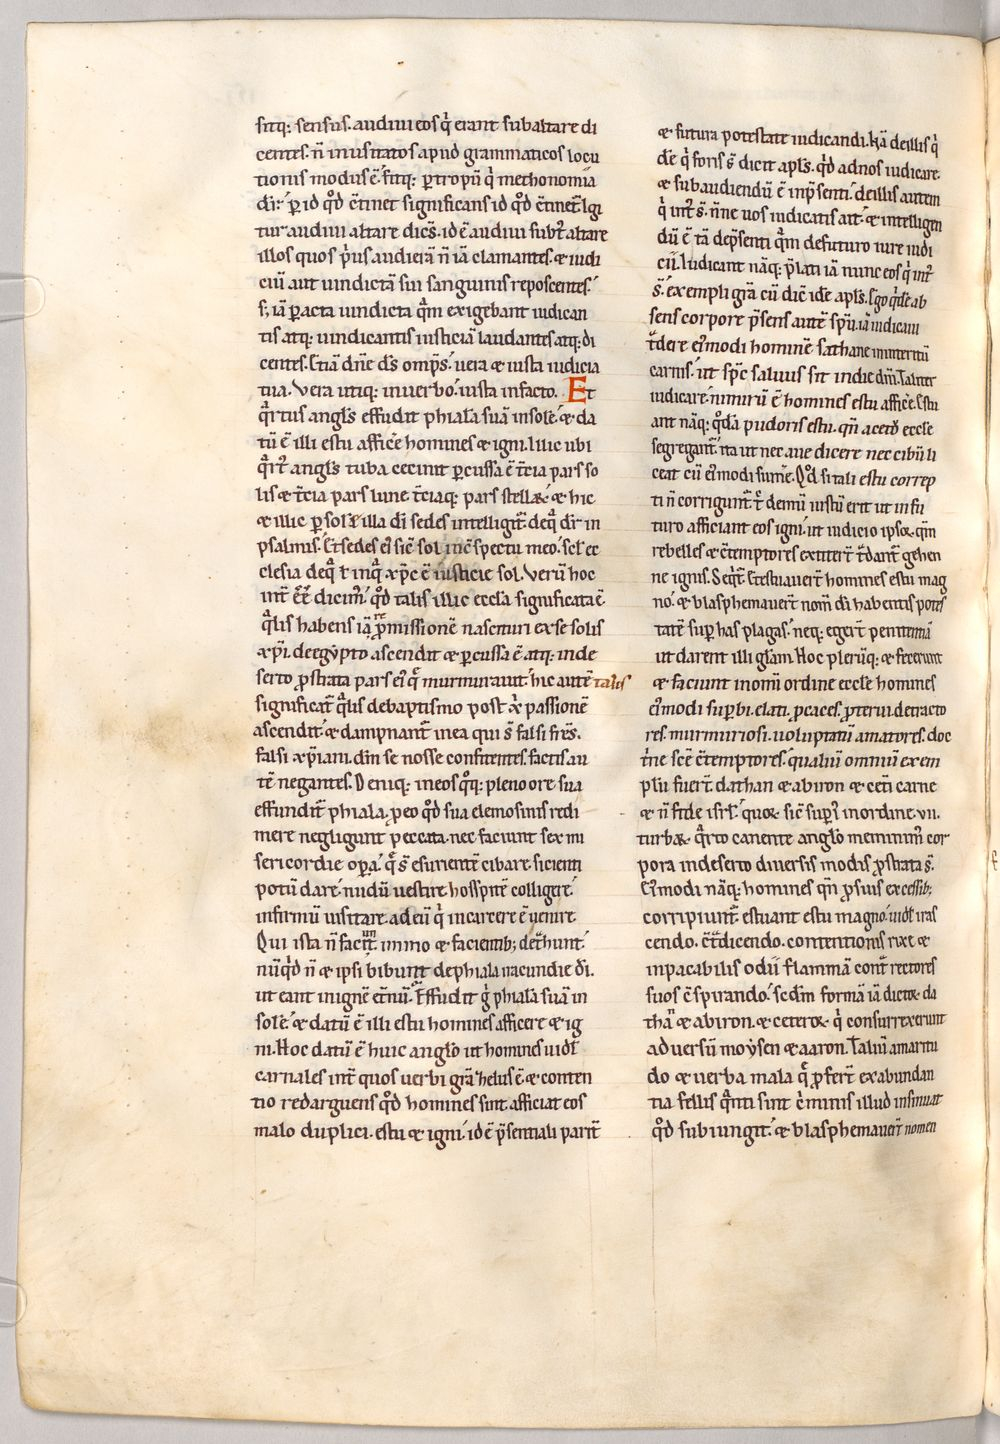 fitq; sensus. audiui eos q̇ erant sub altare di
centes. n̄ inusitatos apud grammaticos locu
tionis modus ē. fitq; ꝑ tropū q̇ methonomia
dr̄. ꝑ id qd̄ ꝯtinet significans id qd̄ ꝯtinet̄. Igi
tur audiui altare dic̄s. id ē audiui subt̄ altare
illos quos p̓us audierā n̄ iā clamantes. & iudi
ciū aut uindictā sui sanguinis reposcentes.
s; iā ꝑacta uindicta qm̄ exigebant iudican
tis atq; uindicantis iusticiā laudantes atq; di
centes. Etiā dn̄e ds̄ omp̄s. uera & iusta iudicia
tua. Vera utiq; in uerbo. iusta in facto. Et
q̄rtus angl̄s effudit phialā suā in sole. & da
tū ē illi estu afficēe homines & igni. Illic ubi
q̄rt̄ angl̄s tuba cecinit ꝑcussa ē t̄cia pars so
lis & t̄cia pars lune t̄ciaq; pars stellaꝝ & hic
& illic ꝑ solē illa di sedes intelligit̄. de q̄ dr̄ in
psalmis. Et sedes ei̓ sic̄ sol in ꝯspectu meo. scl̄ ec
clesia de q̄ ł in q̄ xp̄c ē iusticie sol. Verū hoc
int̄ ēē dicim̓. qd̄ talis illic eccl̄a significata ē.
q̄lis habens iā p̄missionē nascituri ex se solis
xp̄i. de egypto ascendit & ꝑcussa ē atq; in de
serto ꝓstrata pars ei̓ q̄ murmurauit. hic autē talis
significat̄ q̄lis de baptismo post xp̄i passionē
ascendit. & dampnant̄ in ea qui s̄ falsi fr̄es.
falsi xp̄iani. dm̄ se nosse confitentes. factis au
tē negantes. Deniq; in eos qq; pleno ore sua
effundit̄ phiala. ꝓ eo qd̄ sua elemosinis redi
mere negligunt peccata. nec faciunt sex mi
sericordie oꝑa. q̄ s̄ esurientē cibare. sicienti
potū dare. nudū uestire. hospitē colligere.
infirmū uisitare. ad eū q̇ in carcere ē uenire.
Qui ista n̄ faciūt. immo & facientib; det̄hunt.
nūqd̄ n̄ & ipsi bibunt de phiala iracundie di.
ut eant in ignē et̄nū. Effudit g̓ phialā suā in
solē. & datū ē illi estu homines afficere & ig
ni. Hoc datū ē huic anglo ut homines uidł
carnales int̄ quos uerbi gr̄a helus ē & conten
tio redarguens qd̄ homines sunt. afficiat eos
malo duplici. estu & igni. id ē p̄sentiali parit̄
& futura potestate iudicandi. Nā de illis q̇
dē q̇ foris s̄ dicit apl̄s. qd̄ ad nos iudicare.
& subaudiendū ē in p̄senti. de illis autem
q̇ int̄ s̄. n̄ne uos iudicatis ait. & intelligen
dū ē tā de p̄senti qm̄ de futuro iure iudi
cii. Iudicant nāq; p̄lati iā nunc eos q̇ int̄
s̄. exempli gr̄a cū dic̄ idē apl̄s. Ego q̇dē ab
sens corpore p̄sens autē spū. iā iudicaui
t̄dere ei̓modi hominē sathane in interitū
carnis. ut spc̄ saluus sit in die dni. Taliter
iudicare. nimirū ē homines estu afficēe. Estu
aut nāq; qd̄ā pudoris estu. qn̄ a cetu ecc̄le
segregant̄. ita ut nec aue dicere nec cibū li
ceat cū ei̓modi sumē. Qd̄ si tali estu correp
ti n̄ corrigunt̄. t̄ demū iustū erit ut in fu
turo afficiant eos igni. ut iudicio ipsoꝝ. qm̄
rebelles & ꝯtemptores extitert̄ t̄dant̄ gehen
ne ignis. Seqt̄. Et estuauert̄ homines estu mag
no. & blasphemauert̄ nom̄ di habentis potes
tatē suꝑ has plagas. neq; egert̄ penitentiā
ut darent illi glam. Hoc plerūq; & fecerunt
& faciunt in omi ordine eccl̄e homines
ei̓modi suꝑbi. elati. ꝓcaces. ꝓterui. detracto
res. murmuriosi. uoluptatū amatores. doc
t̓ne sc̄e ꝯtemptores. qualiū omniū exem
plū fuert̄. dathan & abiron & cet̄i carne
& n̄ fide isrl̄. quoꝝ sic̄ supi̓ in ordine. vii.
turbaꝝ. q̄rto canente anglo meminim̓ cor
pora in deserto diuersis modis ꝓstrata s̄.
Ei̓modi nāq; homines qn̄ ꝓ suis excessib;
corripiunt̄. estuant estu magno. uidł iras
cendo. ꝯt̄dicendo. contentionis rixe &
inpacabilis odii flammā cont̄ rectores
suos ꝯspirando. scdm̄ formā iā dictoꝝ da
thā & abiron. & ceteroꝝ q̇ consurrexerunt
aduersū moysen & aaron. Taliū amaritu
do & uerba mala q̄ ꝓfert̄ ex abundan
tia fellis q̄nti sint ꝯminis illud insinuat
qd̄ subiungit̄. & blasphemauert̄ nomen